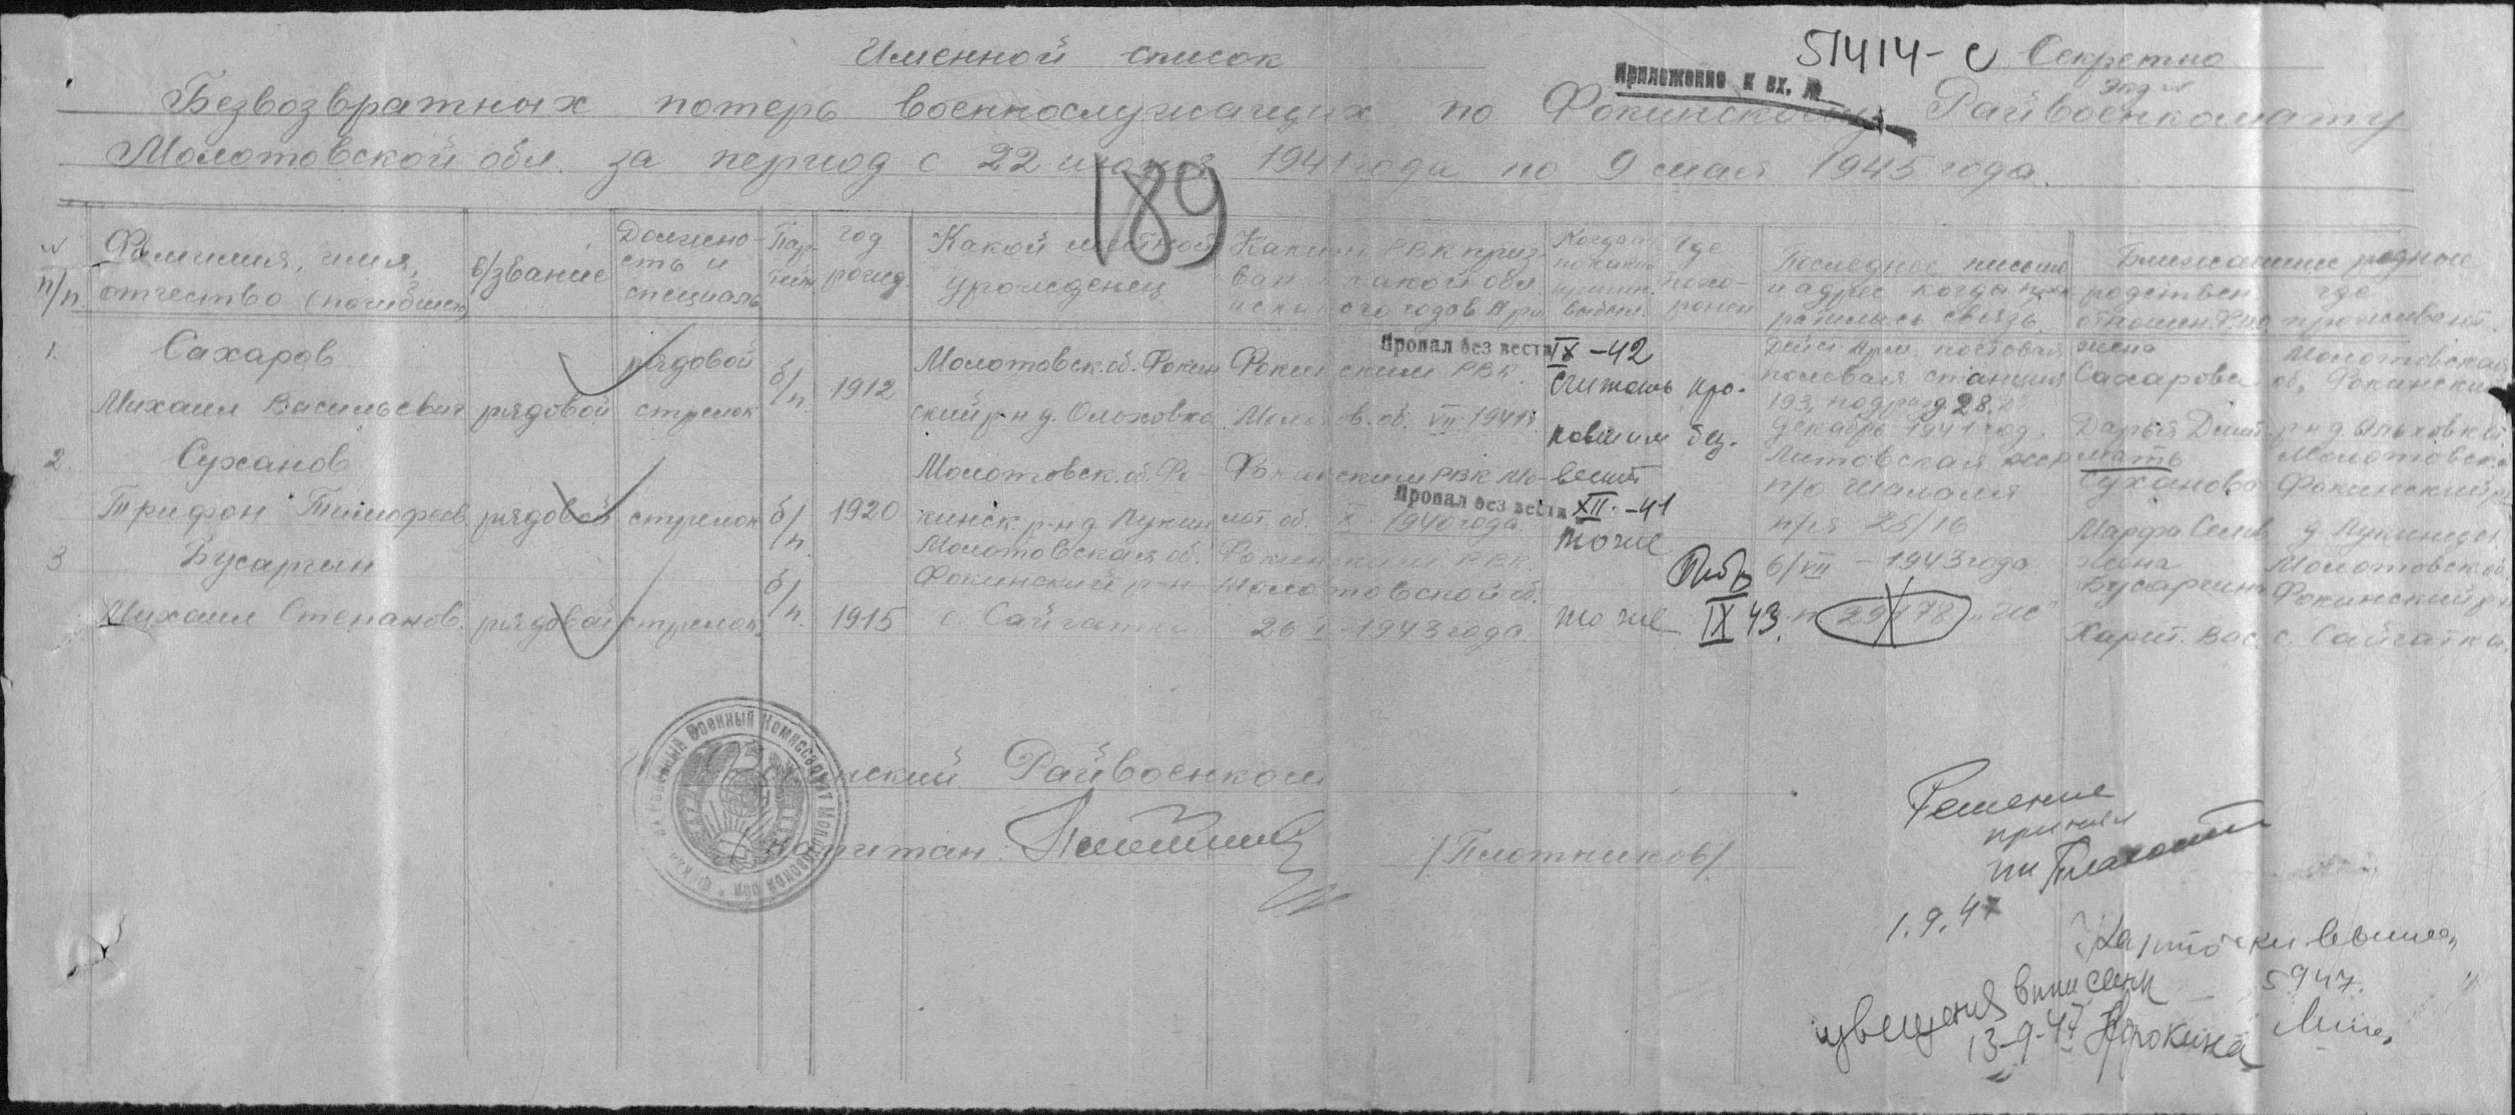 Именной список
51414-с Секретно
Приложение к вх. №
Безвозвратных потерь военнослужащих по Фокинскому Райвоенкомату
Молотовской обл. за период с 22 июня 1941 года по 9 мая 1945 года.
189
№ п/п
Фамилия, имя, отчество (погибшего)
в/звание
Должность и специаль.
Пар-тийн.
год рожд.
Какой местной уроженец
Каким РВК приз-ван какой обл.
Где похо-ронен
Последнее письмо и адрес когда прек-ратилась связь
Ближайшие родные
родствен. отношен. где проживают
1. Сахаров
Михаил Васильевич рядовой
рядовой стрелок
б/п.
1912
Молотовск. об. Фокин
ский р-н д. Ольховка
Фокинским РВК
Молотов. об. VII 1941г.
Пропал без вести IX-42
Считать про-
павшим без.
вести
Дейст. Арм. почтовая
полевая станция
193, подразд. 28.
декабрь 1941 год.
жена
Сахарова
Дарья Дмит.
Молотовская
об. Фокинский
р-н д. Ольховка
2. Суханов
Трифон Тимофеев. рядовой стрелок
б/п.
1920
Молотовск. об. Фо
кинск. р-н д. Лукин
Фокинским РВК Мо-
лот. об. X 1940 года.
Пропал без вести XII.-41
то же
Литовская
п/о Шаламя
п/я 25/16
мать
Суханова
Марфа Семен.
Молотовск.
Фокинский р-
д. Лукинцы
3 Бусаргин
Михаил Степанов. рядовой стрелок.
б/п.
1915
Молотовская об.
Фокинский р-н
с Сайгатка
Фокинским РВК
Молотовской об.
26 I-1943 года.
то же
IX 43.
6/VII - 1943 года
п 29178 "
жена
Бусаргина
Харит. Вас.
Молотовск. об.
Фокинский р-
с. Сайгатка.
Районный Военный Комиссариат Молотовской обл
Фокинский Райвоенком
капитан
/Плотников/
Решение
принял
1.9.47
Карточки
5 9 47.
извещения выписаны
13-9-47